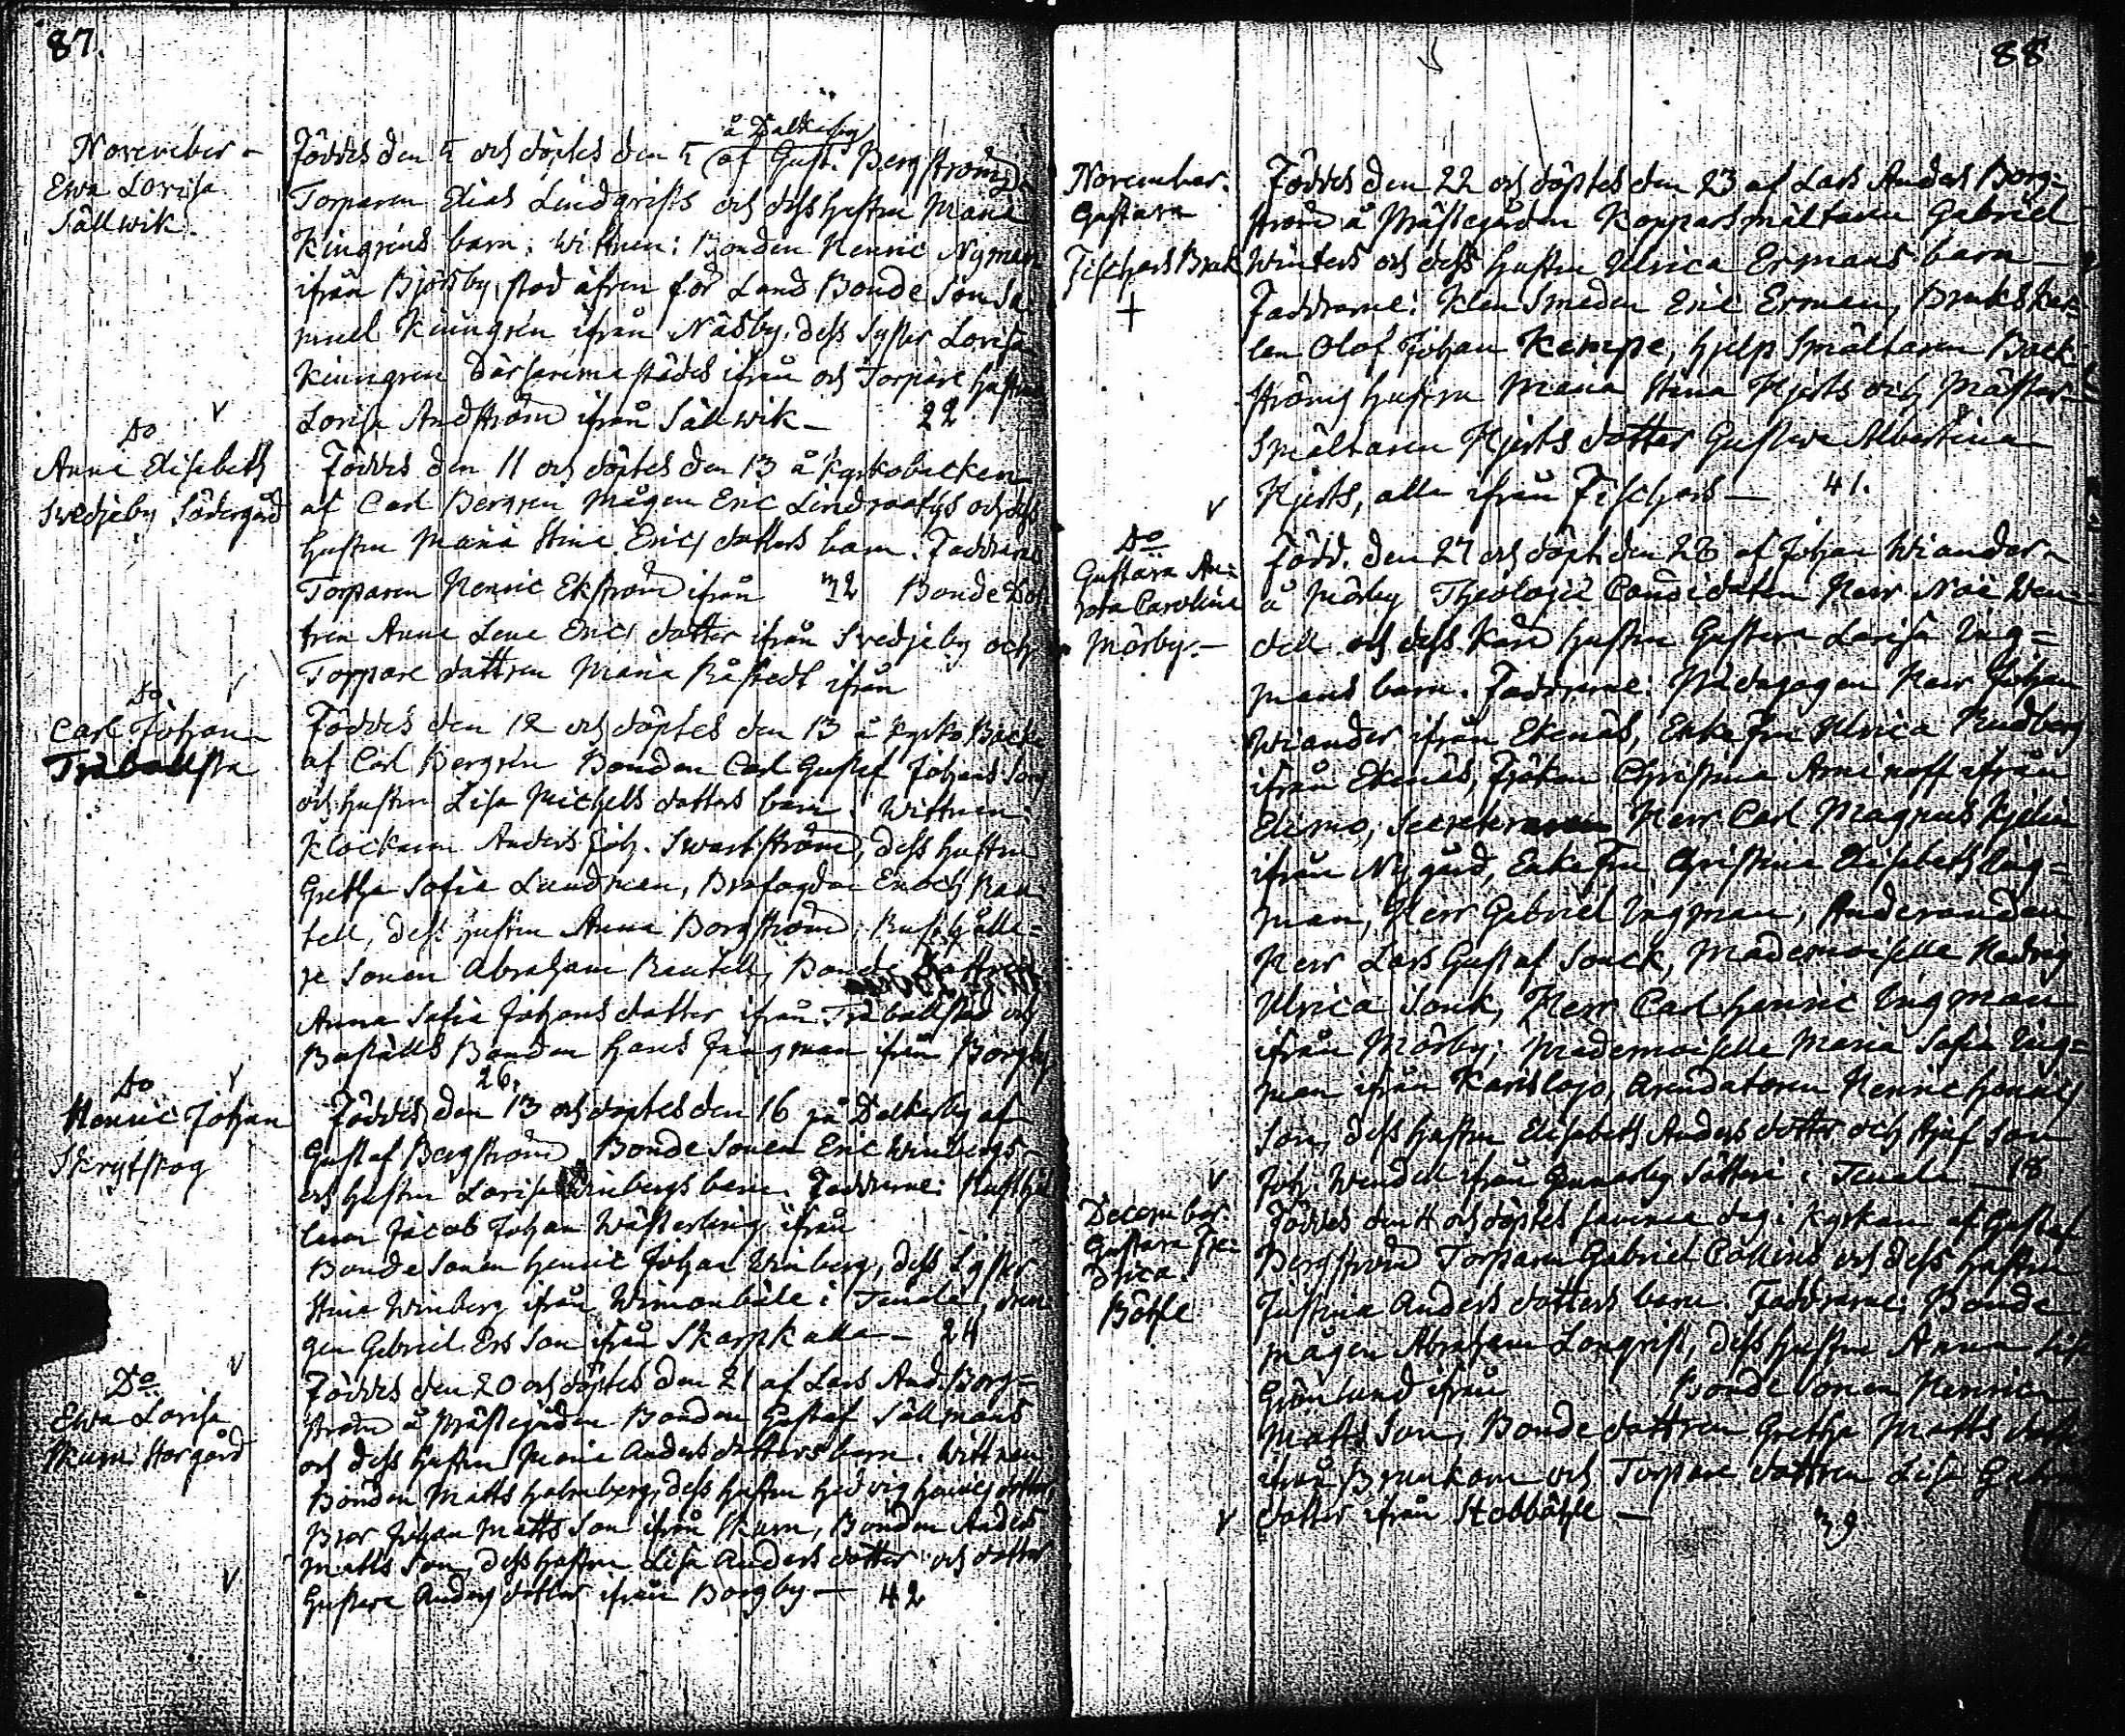 87.
November -
Ewa Lovisa
Sällwik.
å Dalkarby
Föddes den 5 och döptes den 5 af Gust. Bergström
Torparen Elias Lindqvists och dess hustru Maria
Kinngréns barn. Wittnen: Bonden Henric Nyman
ifrån Björsby, stod äfven för Land Bonde Son Sa
muel Kinngrén ifrån Näsby, dess Syster Lovisa
Kinngren därsammastädes ifrån och Torpare hustrun
Lovisa Andström ifrån Sällwik - 22
Do
Anna Elisabeth
Svedjeby Södergård
Föddes den 11 och döptes den 13 å Kyrkobacken
af Carl Bergren Mågen Eric Lindroos och dess
hustru Maria Stina Erics dotters barn. Faddrarne
Torparen Henric Ekström ifrån 32 Bonde Dot
tren Anna Lena Erics dotter ifrån Svedjeby och
Torpare dottren Maria ifrån
Do
Carl Johan
Träbollsta
Föddes den 12 och döptes den 13 å Kyrko Backe
af Carl Bergrén Bonden Carl Gustaf Johans Son
och hustru Lisa Michels dotters barn. Wittnen:
Klockaren Anders Joh. Swartström, dess hustru
Gretha Sofia Lundman, Brofogden Enoch Ran
tell, dess hustru Anna Borgström, Rusthålla=
re Sonen Abraham Rantell, Bonde Dottren
Anna Sofia Johans dotter ifrån Träbollstad och
Boställs Bonden Hans Jungman ifrån Borgby
26.
Do
Henric Johan
Skrytskog
Föddes den 13 och döptes den 16 på Dalkarby af
Gustaf Bergström Bonde Sonen Eric Winbergs
och hustru Lovisa Winbergs barn. Faddrarne: Rusthål
laren Jacob Johan Wästerling ifrån
Bonde Sonen Henric Johan Winberg, dess Syster
Stina Winberg ifrån Wimonböle i Tenala, dren
gen Gabriel Ers Son ifrån Skarpkulla - 24
Do
Ewa Lovisa
Skuru Storgård
Föddes den 20 och döptes den 21 af Lars And. Borg=
ström å Prästegården Bonden Gustaf Sällmans
och dess hustru Maria Anders dotters barn. Wittnen
Bonden Matts Holmberg, dess hustru Hedvig Henrics dotter,
Bror Johan Matts Son ifrån Skuru, Bonden Anders
Matts Son, dess hustru Lisa Anders dotter och dotter
Gustava Anders dotter ifrån Borgby - 42
88
November.
Gustava
Fischars Bruk
+
Föddes den 22 och döptes den 23 af Lars Anders Borg=
ström å Prästegården Kopparsmältaren Gabriel
Winters och dess hustru Ulrica Ermans barn -
Faddrarne: Klen Smeden Eric Erman, Bruks Kar=
len Olof Johan Kempe, hjelp Smältaren Back
ströms hustru Maria Stina Hjerts och Mäster
Smältaren Hjerts dotter Gustava Albertina
Hjerts, alla ifrån Fischars - 41.
Do
Gustava Au=
Carolina
Mörby. -
Född. den 27 och döpt. den 28 af Johan Wiander
å Mörby Theologiæ Candidaten Herr Noë Wen=
dell och dess Kära hustru Gustava Lovisa Ing=
mans barn. Faddrarne: Pædagogen Herr Johan
Wiander ifrån Ekenäs, Enkefru Ulrica Rudberg
ifrån Ekenäs, Fröken Christina Aminoff ifrån
Elimo, Secreteraren Herr Carl Magnus Kjelin
ifrån Nygård, Enkefru Christina Elisabeth Ing=
man, Herr Gabriel Ingman, Studeranden
Herr Lars Gustaf Sonck, Mademoiselle Hedvig
Ulrica Sonk, Herr Carl Henric Ingman
ifrån Mörby; Mademoiselle Maria Sofia Ing=
man ifrån Karislojo, Arendatoren Henric Henrics
Son, dess hustru Elisabeth Anders dotter och Stjuf Son
Joh. Wendell ifrån Gunnarby Sätteri i Tenala - 18
December.
Gustava Fre=
drica.
Bötle
Föddes den 4 och döptes samma dag i Kyrkan af Gustaf
Bergström Torparen Gabriel Collins och dess hustru
Justina Anders dotters barn. Faddrarne: Bonde
mågen Abraham Lönqvist, dess hustru Anna Lisa
Grönlund ifrån Bonde Sonen Henric
Matts Son, Bonde dottren Gretha Matts dotter
ifrån Brunkom och Torpare dottren Lisa Gabri
dotter ifrån Stobbötle - 39